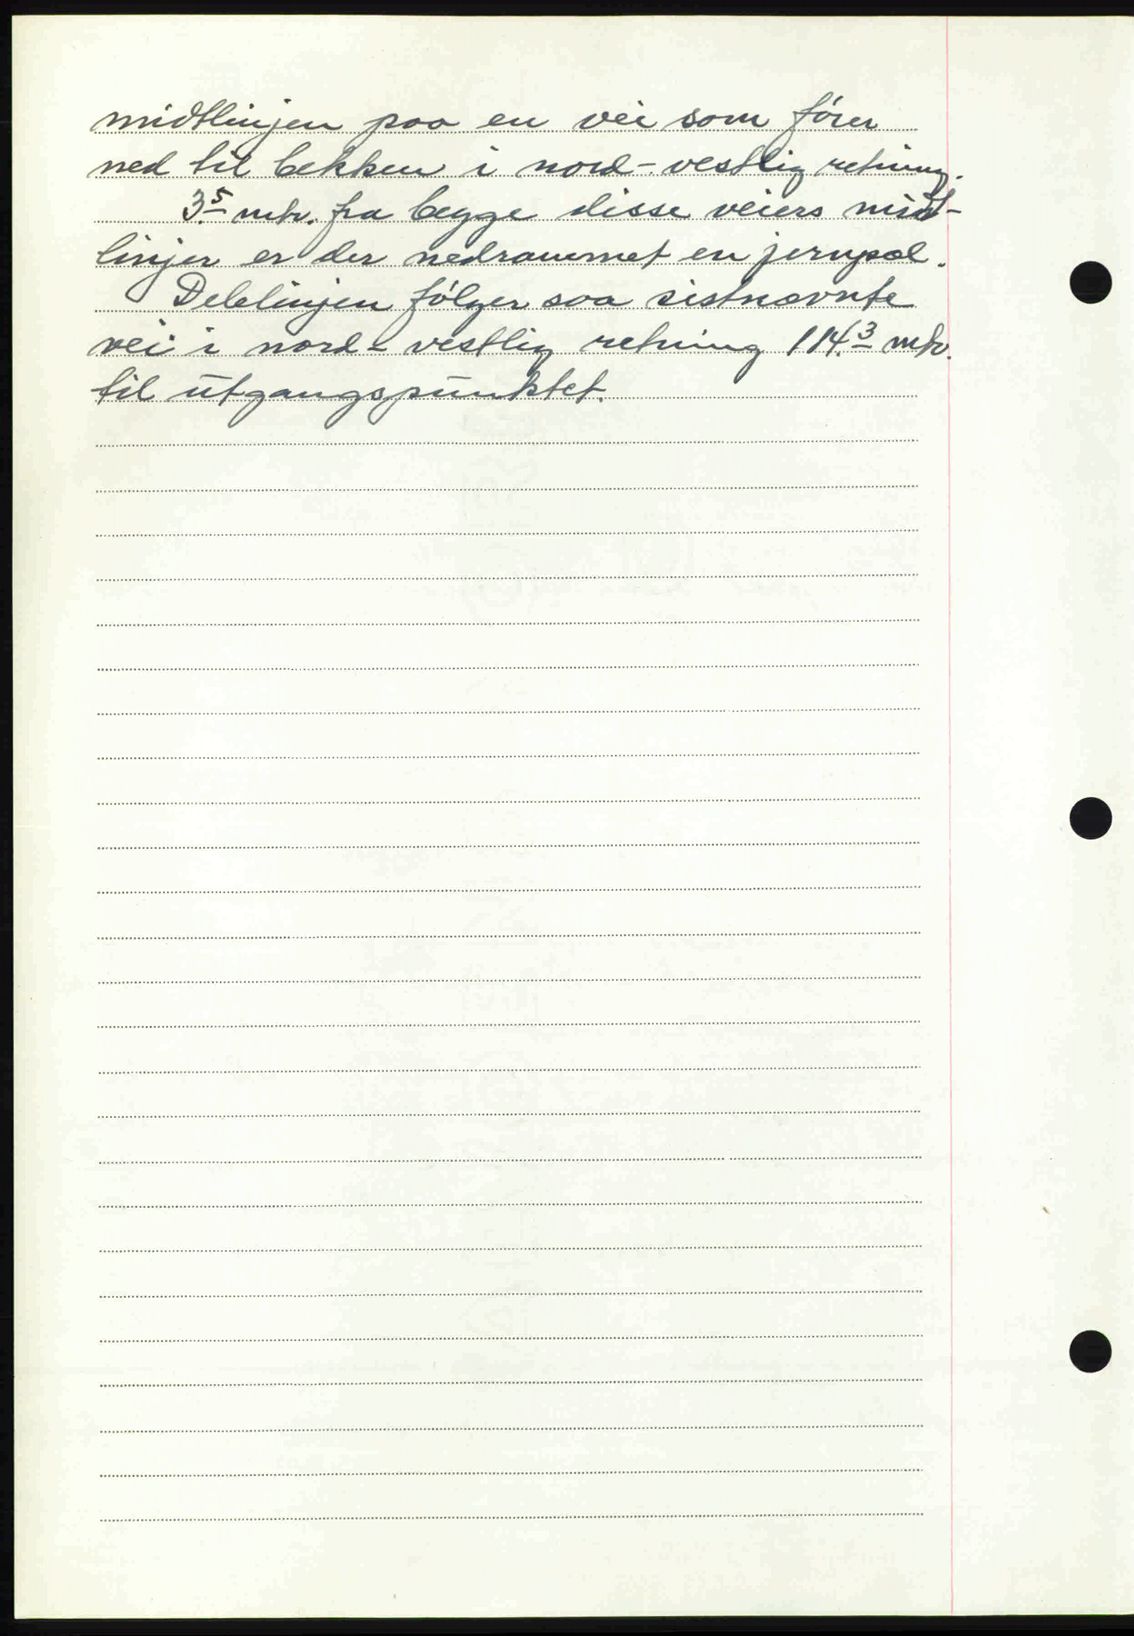 midtlinjen paa en vei som fører
ned til bekken i nord-vestlig retning.
3.5 mtr. fra begge disse veiers midt-
linjer er der nedrammet en jernpæl.
Delelinjen følger saa sistnævnte
vei i nord-vestlig retning 114.3 mtr.
til utgangspunktet.